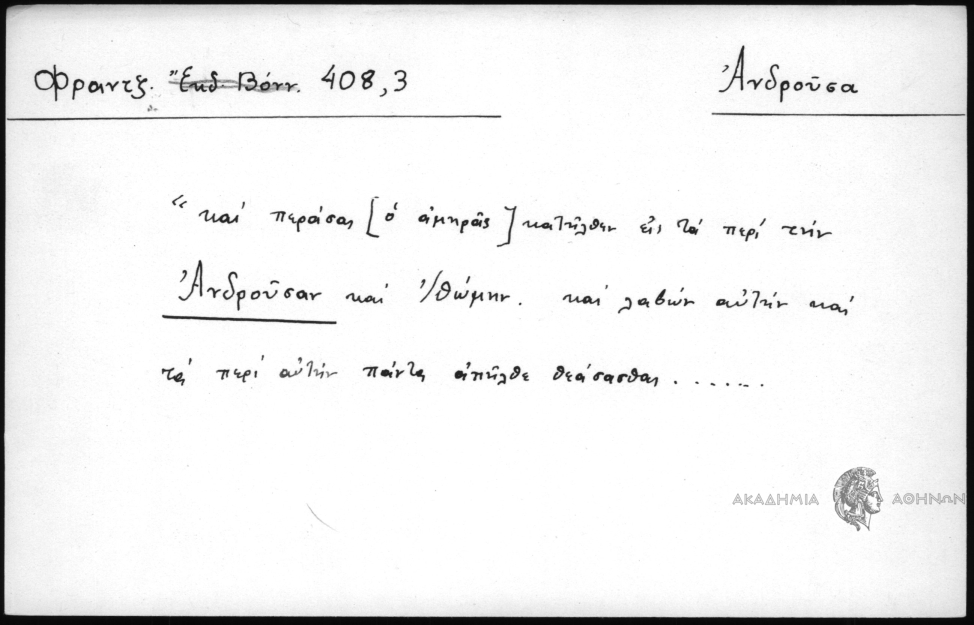 Φραντζ. Ἔκδ. Βόνν. 408,3
Ἀνδροῦσα
“καί περάσας [ὁ ἀμηρᾶς] κατῆλθεν εἰς τά περί τήν
Ἀνδροῦσαν καί Ἰθώμην. καί λαβών αὐτήν καί
τά περί αὐτήν πάντα ἀπῆλθε θεάσασθαι.......
ΑΚΑΔΗΜΙΑ ΑΘΗΝΩΝ